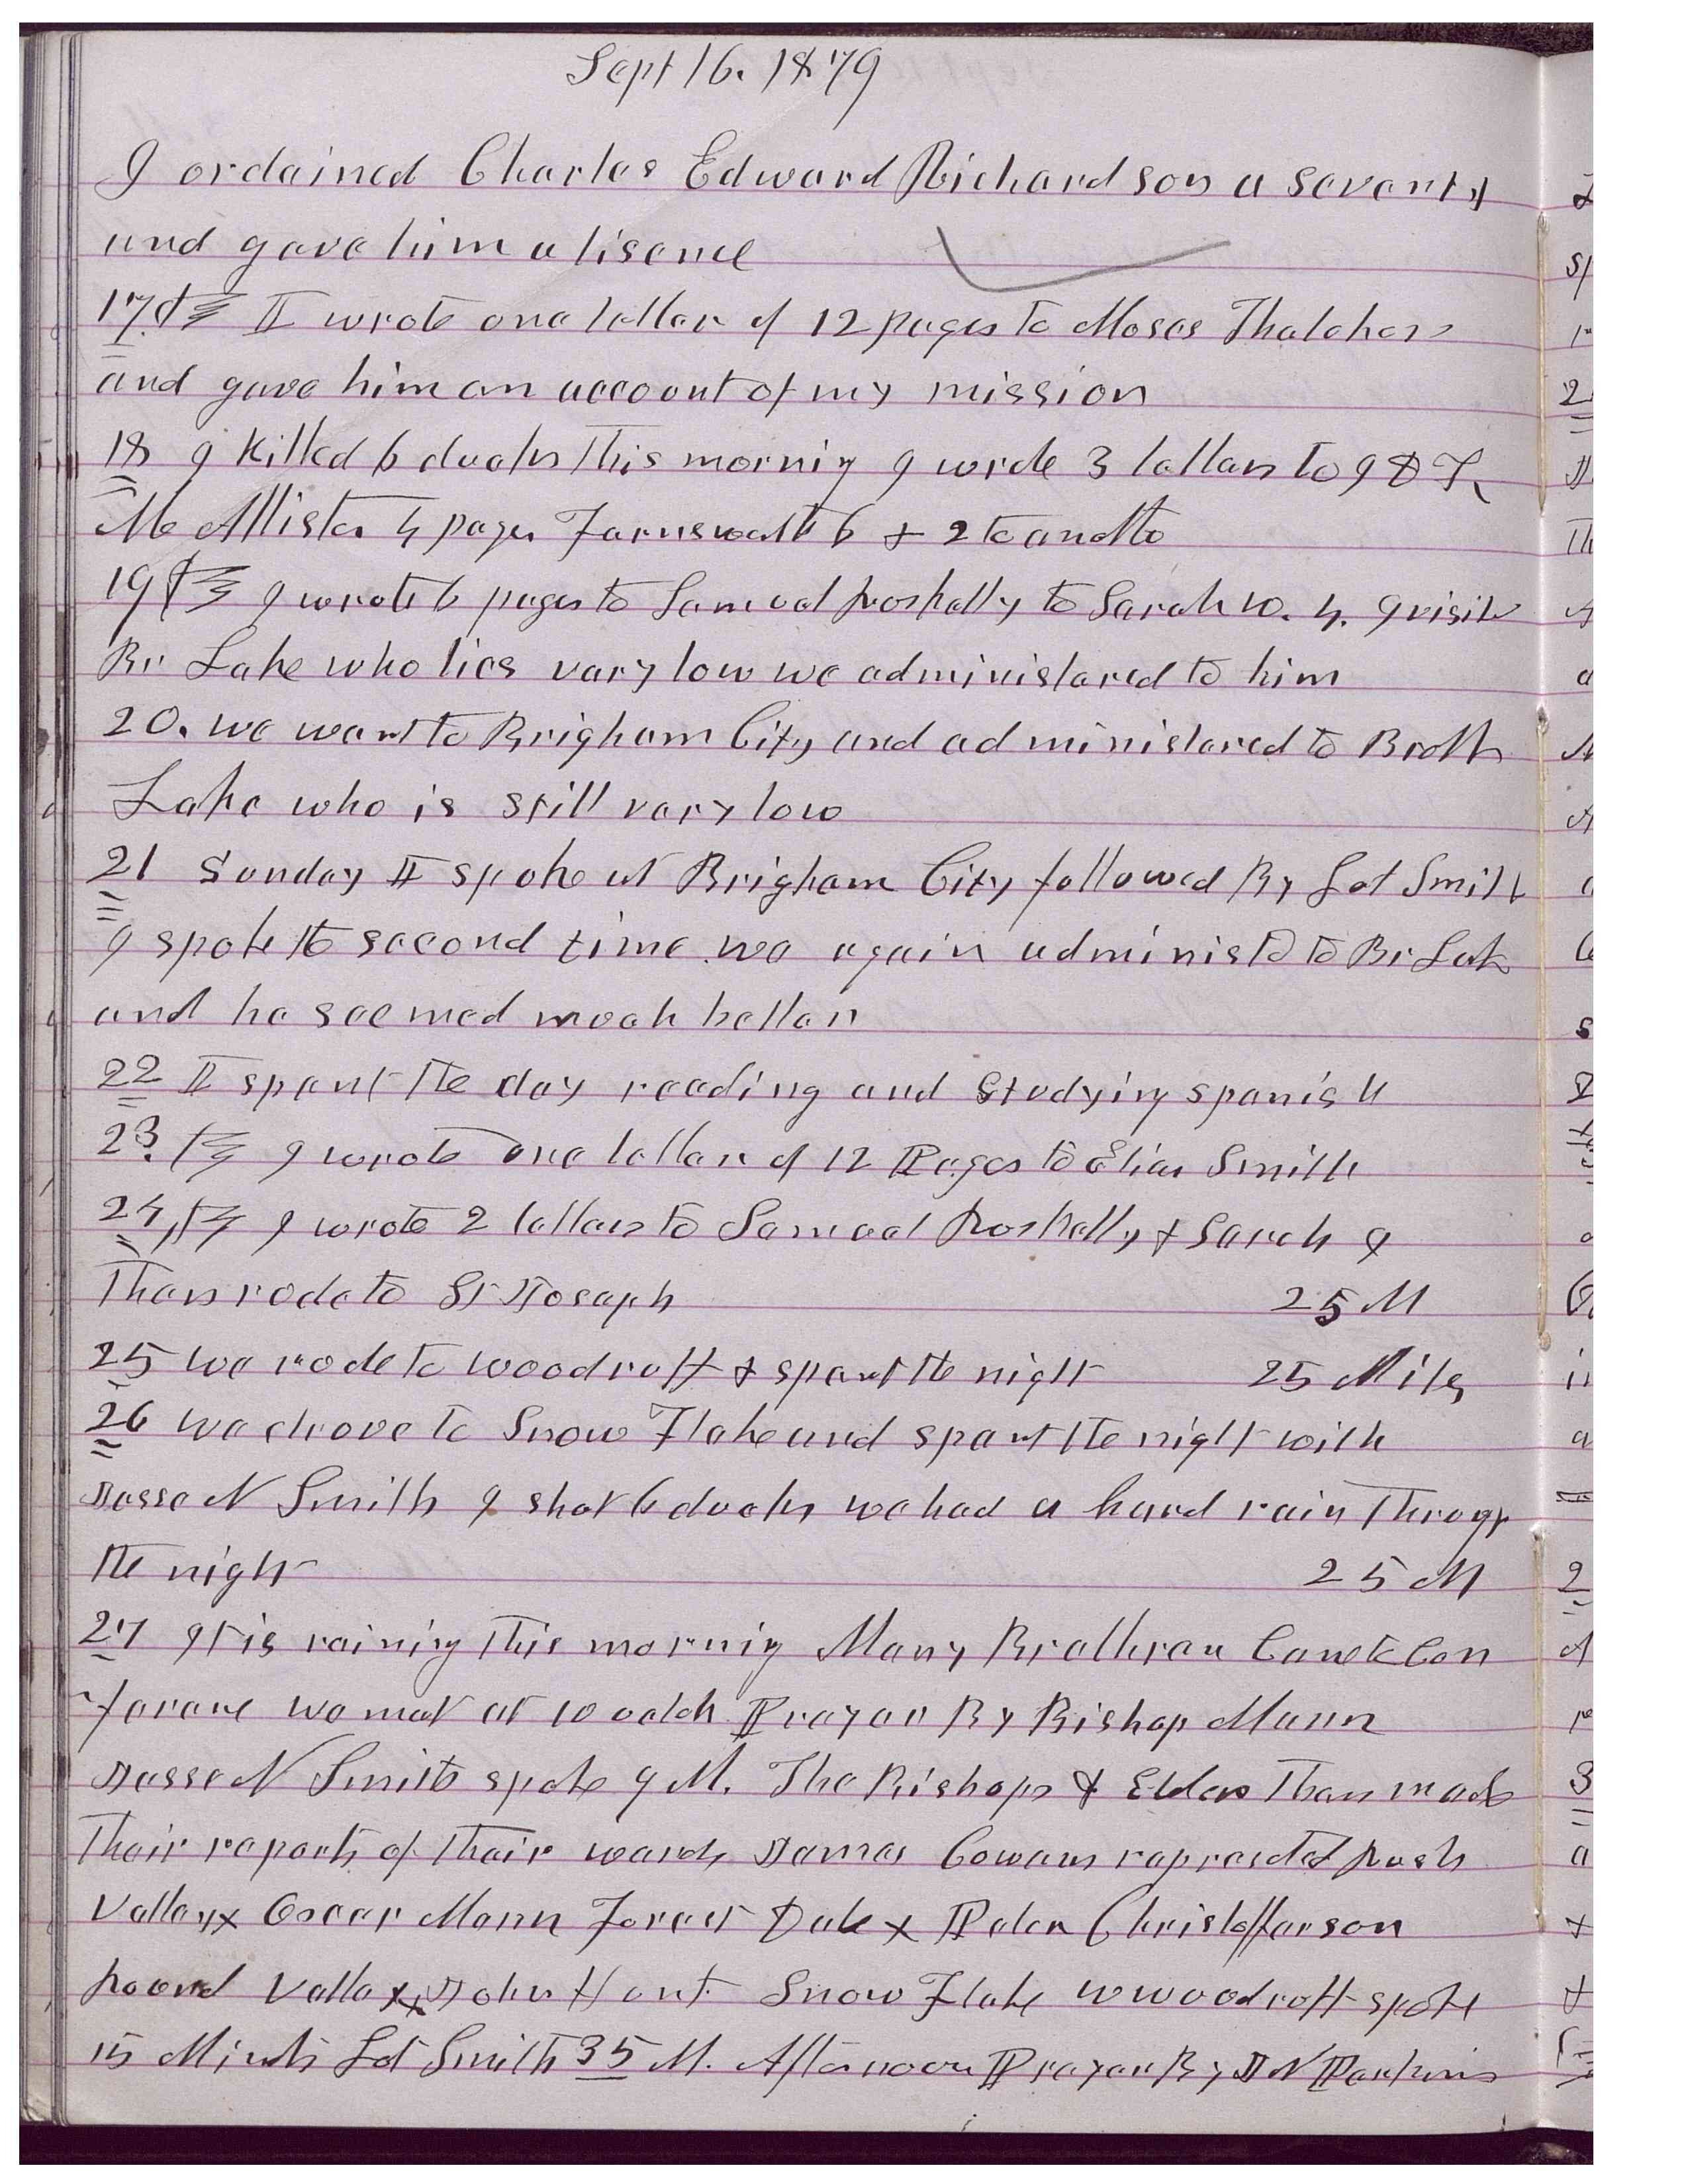 Sept 16. 1879
I ordained Charles Edward Richardson a seventy
and gave him a lisence
17th I wrote one letter of 12 pages to Moses Thatcher
and gave him an account of my mission
18 I killed 6 ducks This morning I wrote 3 letters to J D T
McAllister 4 pages Farnsworth 6 & 2 to
19th I wrote 6 pages to Samuel Roskelly to Sarah 10. 4. I visit
Br Lake who lies very low we administered to him
20. we went to Brigham City and administered to Broth
Lake who is still very low
21 Sunday I spoke at Brigham City followed By Lot Smith
I spoke the second time. we again administd to Br Lake
and he seemed much better
22 I spent the day reading and studying spanish
23. I wrote one letter of 12 Pages to Elias Smith
24, I wrote 2 letters to Samuel Roskelly & Sarah I
Then rode to St Joseph 25 M
25 we rode to woodruff & spent the night 25 Miles
26 we drove to Snow Flake and spent the night with
Jesse N Smith I shot 6 ducks we had a hard rain through
the night 25 M
27 It is raining This morning Many Brethren Came to Con
ference we met at 10 oclok Prayer By Bishop Mann
Jesse N Smith spoke 9 M. The Bishops & Elders Then made
Their reports of Their wards James Cowans represted Rush
Valley x Oscar Mann Forest Dale x Peter Christofferson
Round Valley x John Hunt Snow Flake W woodruff spoke
15 Minuts Lot Smith 35 M. Afternoon Prayer By J N Perkins